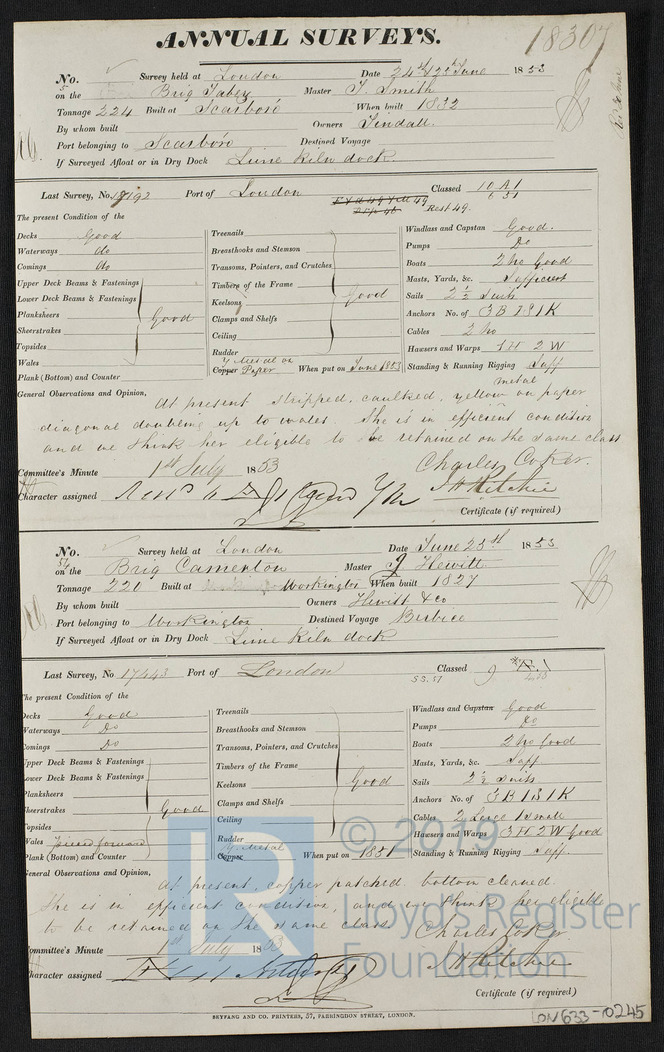 ANNUAL SURVEYS.
18307
No. Survey held at London Date 24th & 25 June 1853
on the Brig Master T. Smith
Tonnage 224 Built at Scarboró When built 1832
By whom built Owners Tindall.
Port belonging to Scarboró Destined Voyage
If Surveyed Afloat or in Dry Dock Lime Kiln dock.
Last Survey, No. Port of London Classed 10 A1
Rest 49. 6 51
The present Condition of the
Decks Good Treenails Windlass and Capstan Good.
Waterways do Breasthooks and Stemson Pumps Do
Comings do Transoms, Pointers, and Crutches Boats 2 No Good
Upper Deck Beams & Fastenings Timbers of the Frame Masts, Yards, &c. Sufficient
Lower Deck Beams & Fastenings Keelsons Good Sails 2½ Suits
Plankshears Good Clamps and Shelfs Anchors No. of 3 B 1 S 1 K
Sheerstrakes Ceiling Cables 2 No
Topsides Rudder Hawsers and Warps 1 H 2 W
Wales Y Metal on
Copper Paper When put on June 1853 Standing & Running Rigging Suff
Plank (Bottom) and Counter
General Observations and Opinion, At present stripped, caulked, yellow metal on paper
diagonal doubling up to wales. She is in efficient condition
and we think her eligible to be retained on the same class
Committee's Minute 1st July 1853 Charles Coker.
Character assigned J H Ritchie
Certificate (if required)
No. Survey held at London Date June 25th 1853
on the Brig Camerton Master J Hewitt
Tonnage 220 Built at Workington When built 1827
By whom built Owners Hewitt & Co
Port belonging to Workington Destined Voyage Berbice
If Surveyed Afloat or in Dry Dock Lime Kiln dock
Last Survey, No 17443 Port of London Classed
53.51
The present Condition of the
Decks Good Treenails Windlass and Capstan Good
Waterways Do Breasthooks and Stemson Pumps Do
Comings Do Transoms, Pointers, and Crutches Boats 2 No Good
Upper Deck Beams & Fastenings Timbers of the Frame Masts, Yards, &c. Suff
Lower Deck Beams & Fastenings Keelsons Good Sails 2½ Suits
Planksheers Clamps and Shelfs Anchors No. of 3 B 1 S 1 K
Sheerstrakes Good Ceiling Cables 2 Large 1 Small
Topsides Rudder Hawsers and Warps 3 H 2 W Good
Wales forward Y. Metal
Copper When put on 1851 Standing & Running Rigging Suff
Plank (Bottom) and Counter
General Observations and Opinion,
At present, copper patched, bottom cleaned.
She is in efficient condition, and we think her eligible
to be retained on the same class
Charles Coker
Committee's Minute 1st July 1853
Character assigned J H Ritchie
Certificate (if required)
SEYFANG AND CO. PRINTERS, 57, FARRINGDON STREET, LONDON.
LON633-0245
LR © 2019
Lloyd's Register
Foundation